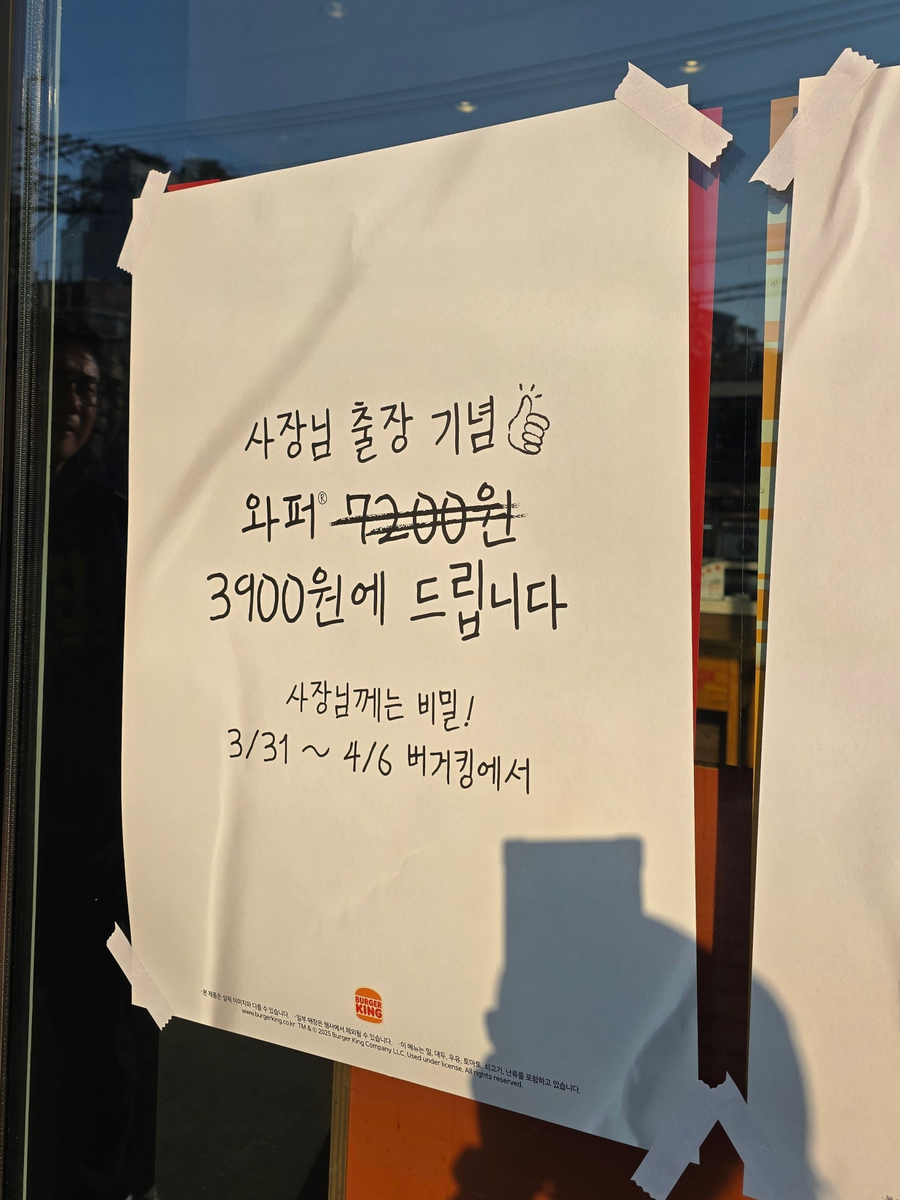 사장님 출장 기념
와퍼® 7200원
3900원에 드립니다
사장님께는 비밀!
3/31 ~ 4/6 버거킹에서
BURGER
KING
·본 제품은 실제 이미지와 다를 수 있습니다. ·일부 매장은 행사에서 제외될 수 있습니다. ·이 메뉴는 밀, 대두, 우유, 토마토, 쇠고기, 난류를 포함하고 있습니다.
www.burgerking.co.kr TM & © 2025 Burger King Company LLC. Used under license. All rights reserved.